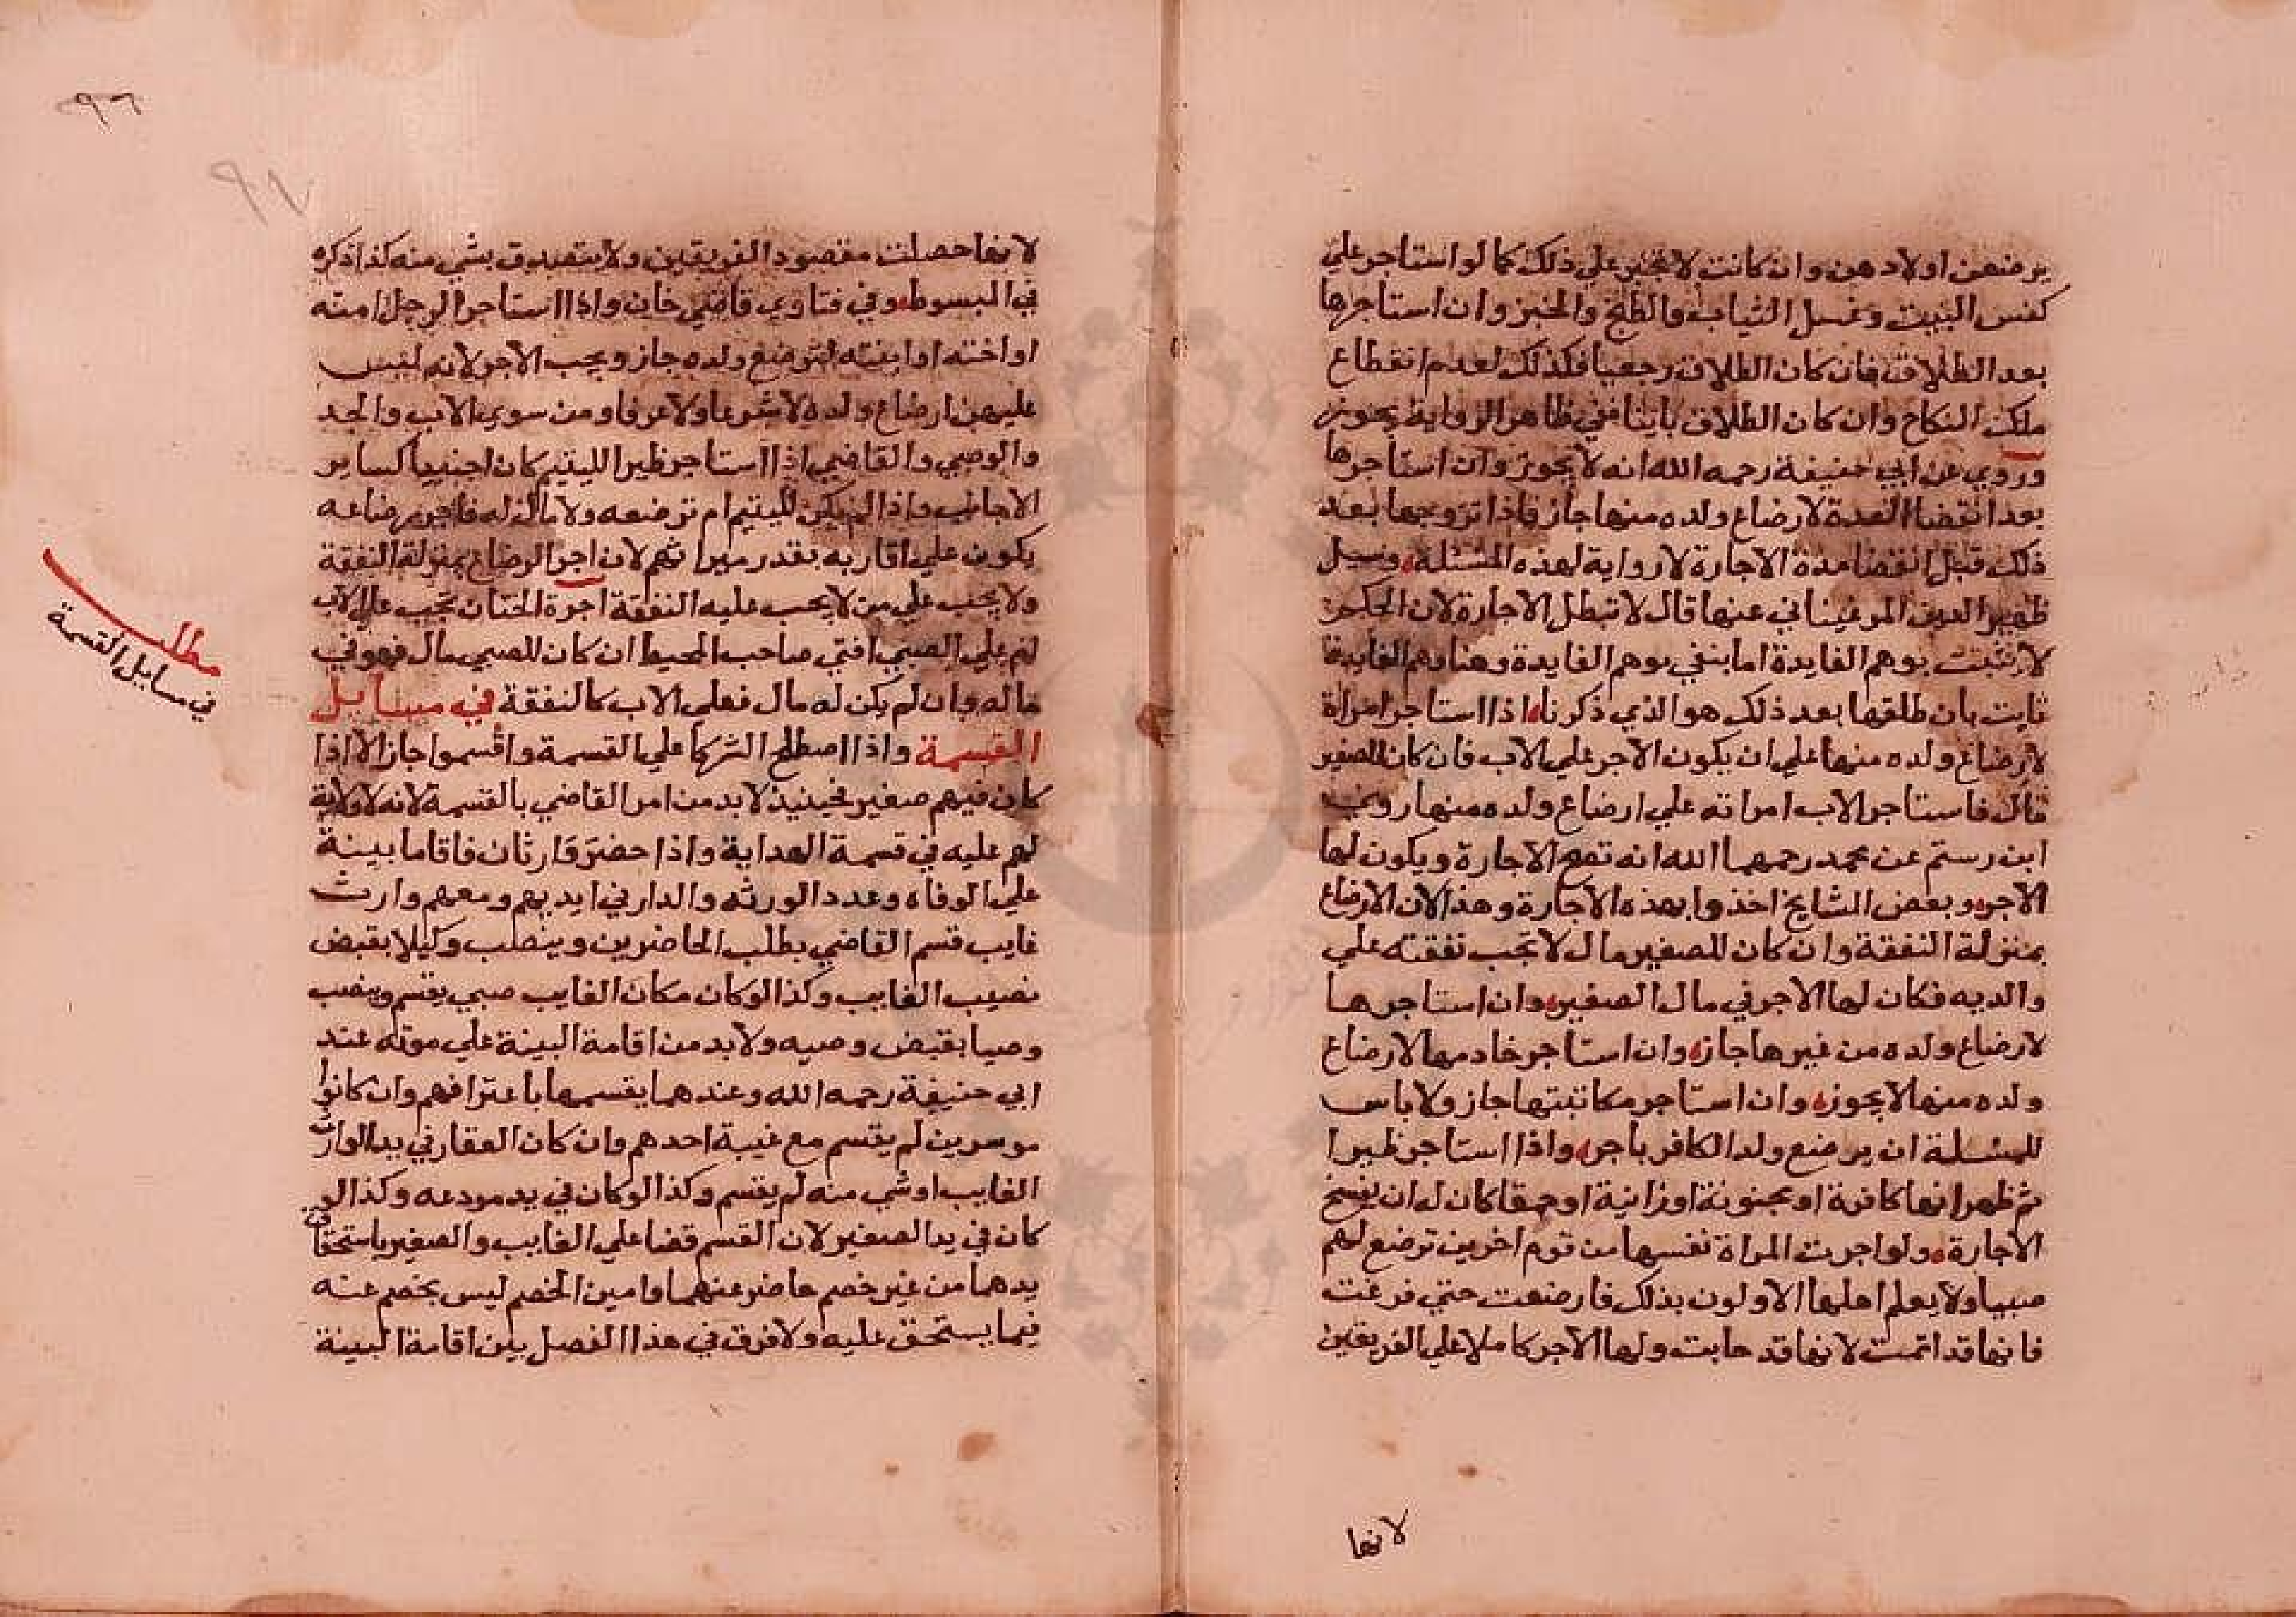 يرضعن اولادهن وان كانت لا تجبر علي ذلك كما لو استاجر علي
كنس البيت وغسل الثياب والطبخ والخبز وان استاجرها
بعد الطلاق فان كان الطلاق رجعيا فكذلك لعدم انقطاع
ملك النكاح وان كان الطلاق باينا ففي ظاهر الرواية يجوز
وروي عن ابي حنيفة رحمه الله انه لا يجوز وان استاجرها
بعد انقضا العدة لارضاع ولده منها جاز فاذا تزوجها بعد
ذلك قبل انقضا مدة الاجارة لا رواية لهذه المسئلة وسيل
ظهير الدين المرغيناني عنها قال لا تبطل الاجارة لان الحكم
لا يثبت بوهم الفايدة اما يبقي بوهم الفايدة وهنا وهم الفايدة
ثابت بان طلقها بعد ذلك هو الذي ذكرنا اذا استاجر امراة
لارضاع ولده منها علي ان يكون الاجر علي الاب فان كان للصغير
مال فاستاجر الاب امراته علي ارضاع ولده منها روي
ابن رستم عن محمد رحمهما الله انه تصح الاجارة ويكون لها
الاجر وبعض المشايخ اخذوا بهذه الاجارة وهذا لان الارضاع
بمنزلة النفقة وان كان للصغير مال لا تجب نفقته علي
والديه فكان لها الاجر في مال الصغير وان استاجرها
لارضاع ولده من غيرها جاز وان استاجر خادمها لارضاع
ولده منها لا يجوز وان استاجر مكاتبتها جاز ولا باس
للمسلمة ان يرضع ولد الكافر باجر واذا استاجر ظيرا
ثم ظهر انها كافرة او مجنونة او زانية او حمقا كان له ان يفسخ
الاجارة ولو اجرت المراة نفسها من قوم اخرين ترضع لهم
صبيا ولا يعلم اهلها الاولون بذلك فارضعت حتي فرغت
فانها قد اثمت لانها قد خانت ولها الاجر كاملا علي الفريقين
لانها
٩٦
٩٧
لانها حصلت مقصود الفريقين ولا يتصدق بشي منه كذا ذكره
في المبسوط وفي فتاوي قاضي خان واذا استاجر الرجل امته
او اخته او ابنته لترضع ولده جاز ويجب الاجر لانه ليس
عليهن ارضاع ولده لا شرعا ولا عرفا ومن سوي الاب والجد
والوصي والقاضي اذا استاجر ظيرا لليتيم كان اجنبيا كساير
الاجانب واذا لم يكن لليتيم ام ترضعه ولا مال له فاجر رضاعه
يكون علي اقاربه بقدر ميراثهم لان اجر الرضاع بمنزلة النفقة
ولا يجب علي من لا يجب عليه النفقة اجرة الختان تجب علي الاب
ام علي الصبي افتي صاحب المحيط ان كان للصبي مال فهو في
ماله وان لم يكن له مال فعلي الاب كالنفقة في مسايل
القسمة واذا اصطلح الشركا علي القسمة واقسموا جاز الا اذا
كان فيهم صغير فحينيذ لا بد من امر القاضي بالقسمة لانه لا ولاية
لهم عليه في قسمة الهداية واذا حضر وارثان فاقاما بينة
علي الوفاه وعدد الورثه والدار في ايديهم ومعهم وارث
غايب قسم القاضي بطلب الحاضرين وينصب وكيلا بقبض
نصيب الغايب وكذا لو كان مكان الغايب صبي يقسم وينصب
وصيا بقبض وصيه ولا بد من اقامة البينة علي موته عند
ابي حنيفة رحمه الله وعندهما يقسمها باعترافهم وان كانوا
موسرين لم يقتسم مع غيبة احدهم وان كان العقار في يد الوارث
الغايب او شي منه لم يقسم وكذا لو كان في يد مودعه وكذا لو
كان في يد الصغير لان القسم قضا علي الغايب والصغير باستحقاق
يدهما من غير خصم حاضر عنهما وامين الخصم ليس بخصم عنه
فيما يستحق عليه ولا فرق في هذا الفصل بين اقامة البينة
مطلب
في مسايل القسمة